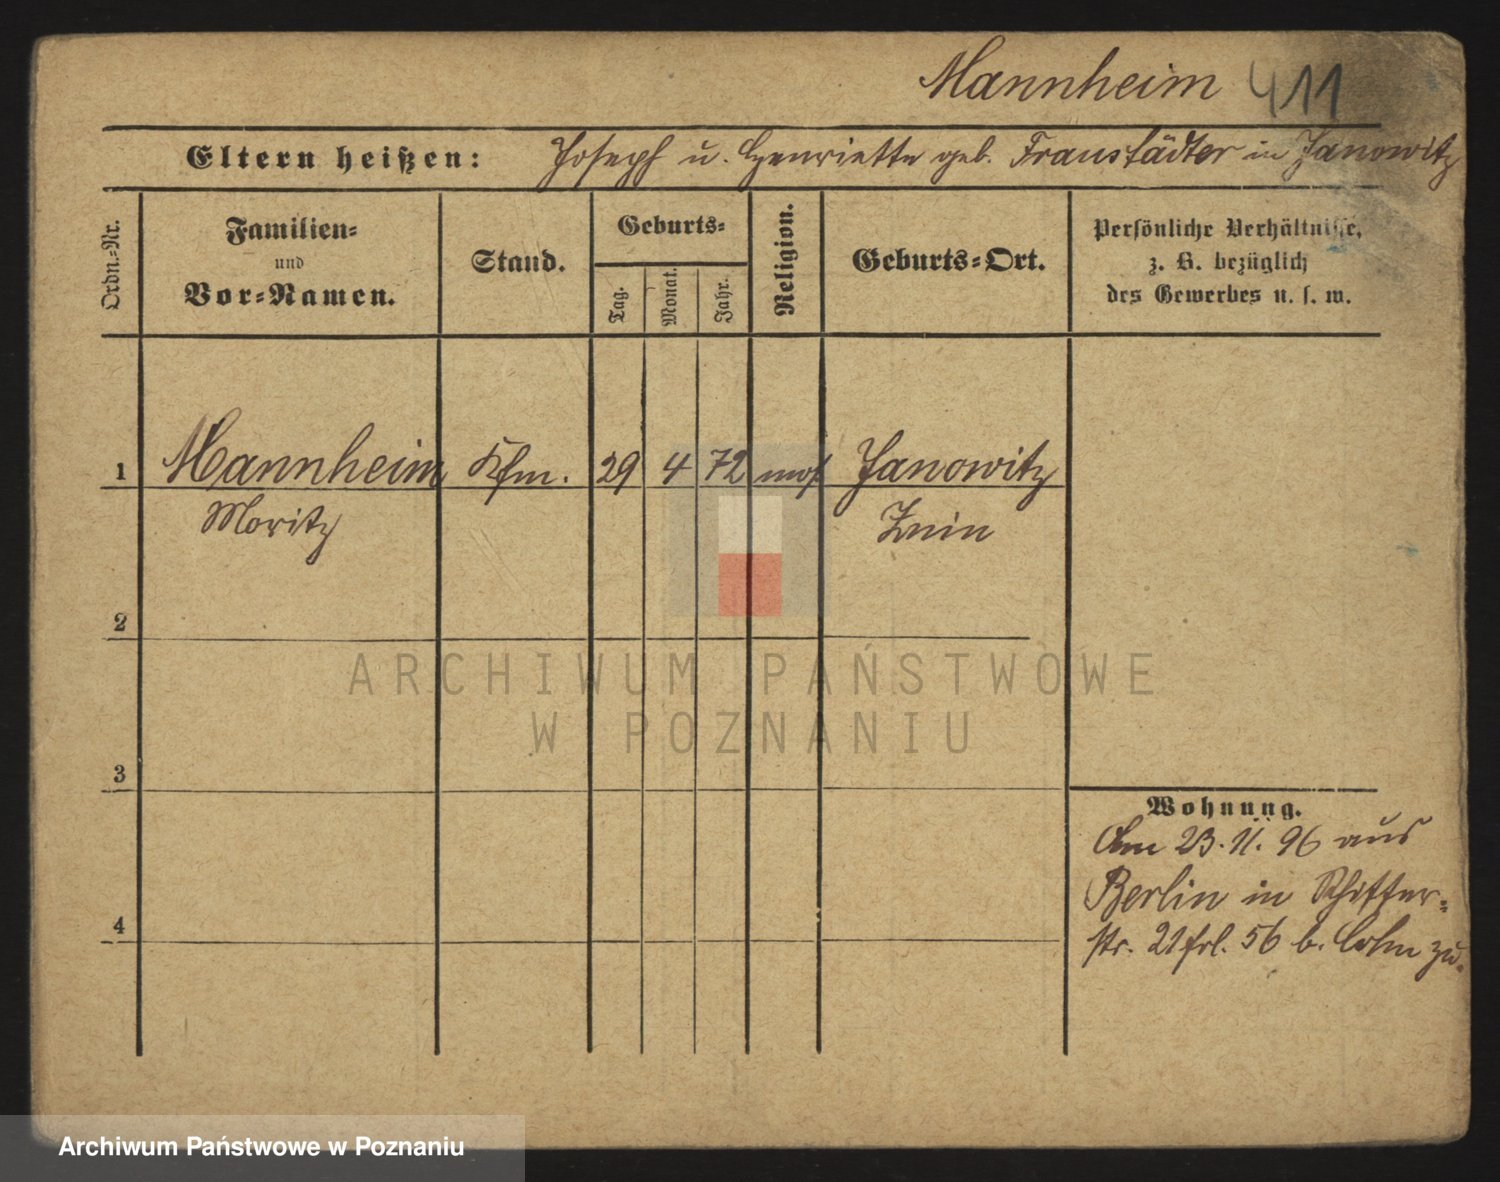 Mannheim 411
Eltern heißen: Joseph u. Henriette geb. Fraustädter in Janowitz
Ordn.-Nr.
Familien-
und
Vor-Namen.
Stand.
Geburts-
Tag.
Monat.
Jahr.
Religion.
Geburts-Ort.
Persönliche Verhältnisse,
z. B. bezüglich
des Gewerbes u. s. w.
1 Mannheim Kfm. 29 4 72 mos Janowitz
Moritz Znin
2
3
4
Wohnung.
Am 23.11.96 aus
Berlin in
str. 21 frl. 56 b. Cohn zu.
ARCHIWUM PAŃSTWOWE
W POZNANIU
Archiwum Państwowe w Poznaniu